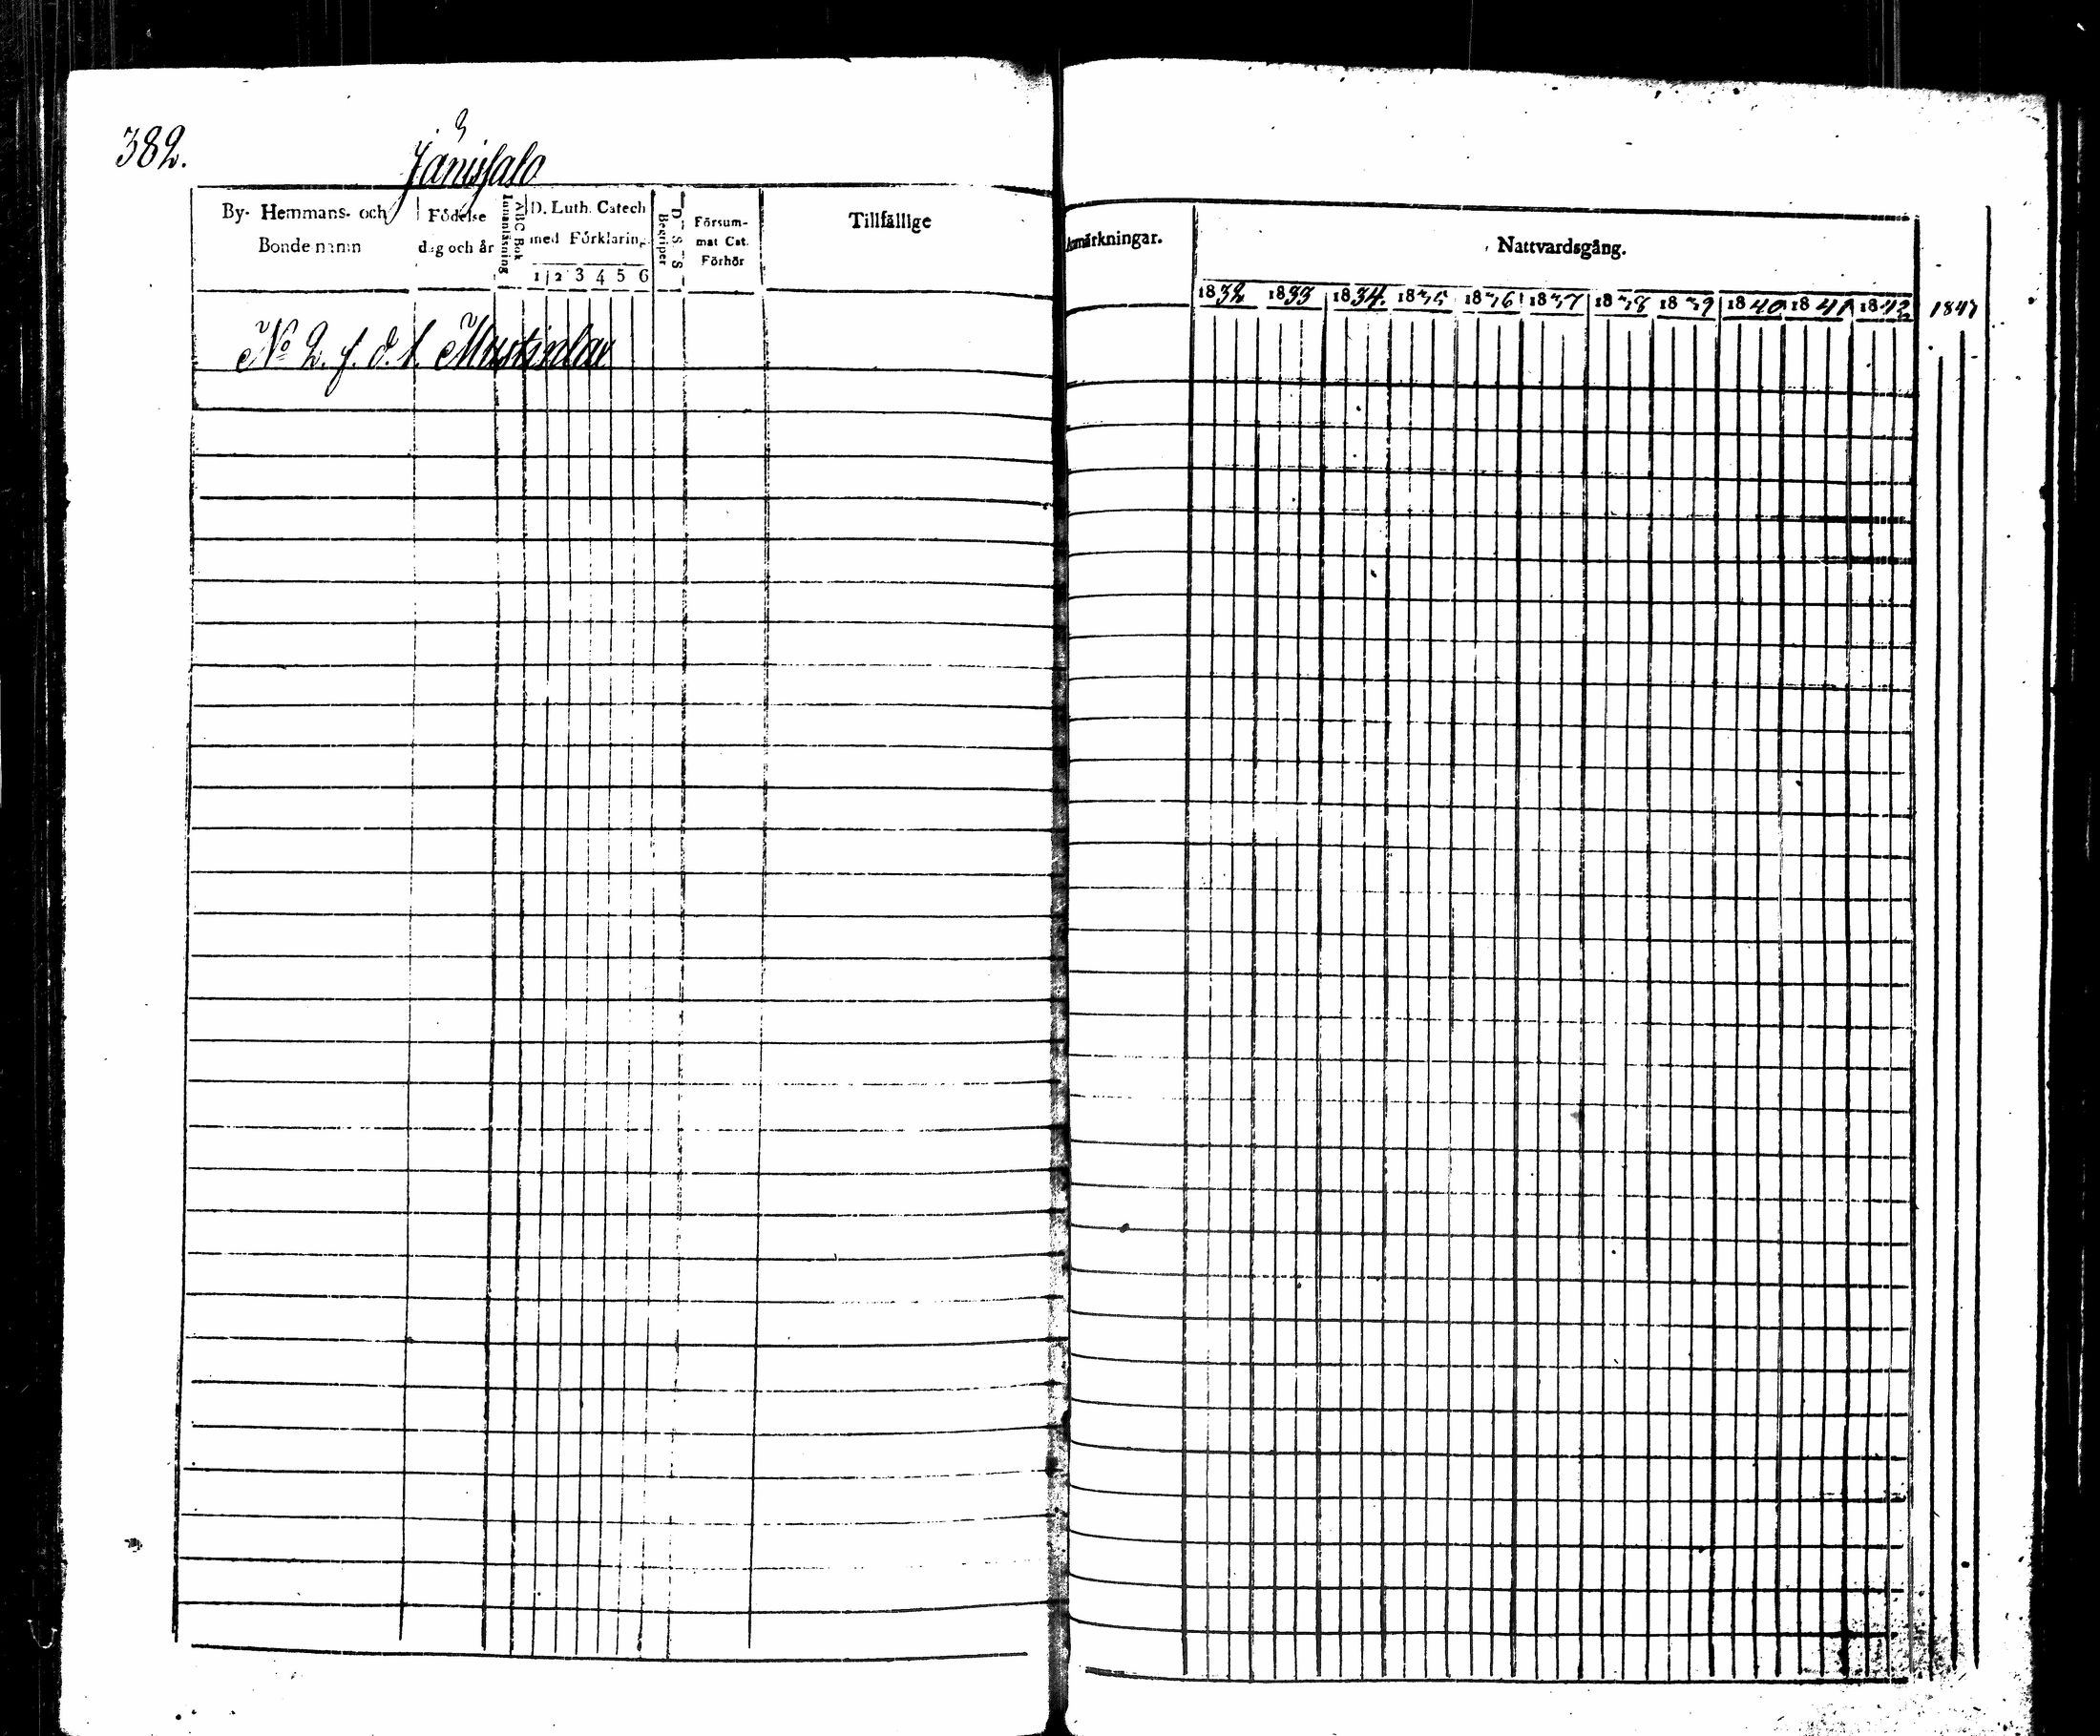 382.
Jänissalo
By- Hemmans- och
Bonde namn
Födelse
dag och år
Innanläsning
ABC Bok
D. Luth. Catech
med Förklaring
1 2 3 4 5 6
D. S. S.
Begriper
Försum-
mat Cat.
Förhör
Tillfällige
Anmärkningar.
Nattvardsgång.
1832 1833 1834. 1835 1836 1837 1838 1839 1840 1841 1842 1843
No 2. f. d. l. Mustinlax